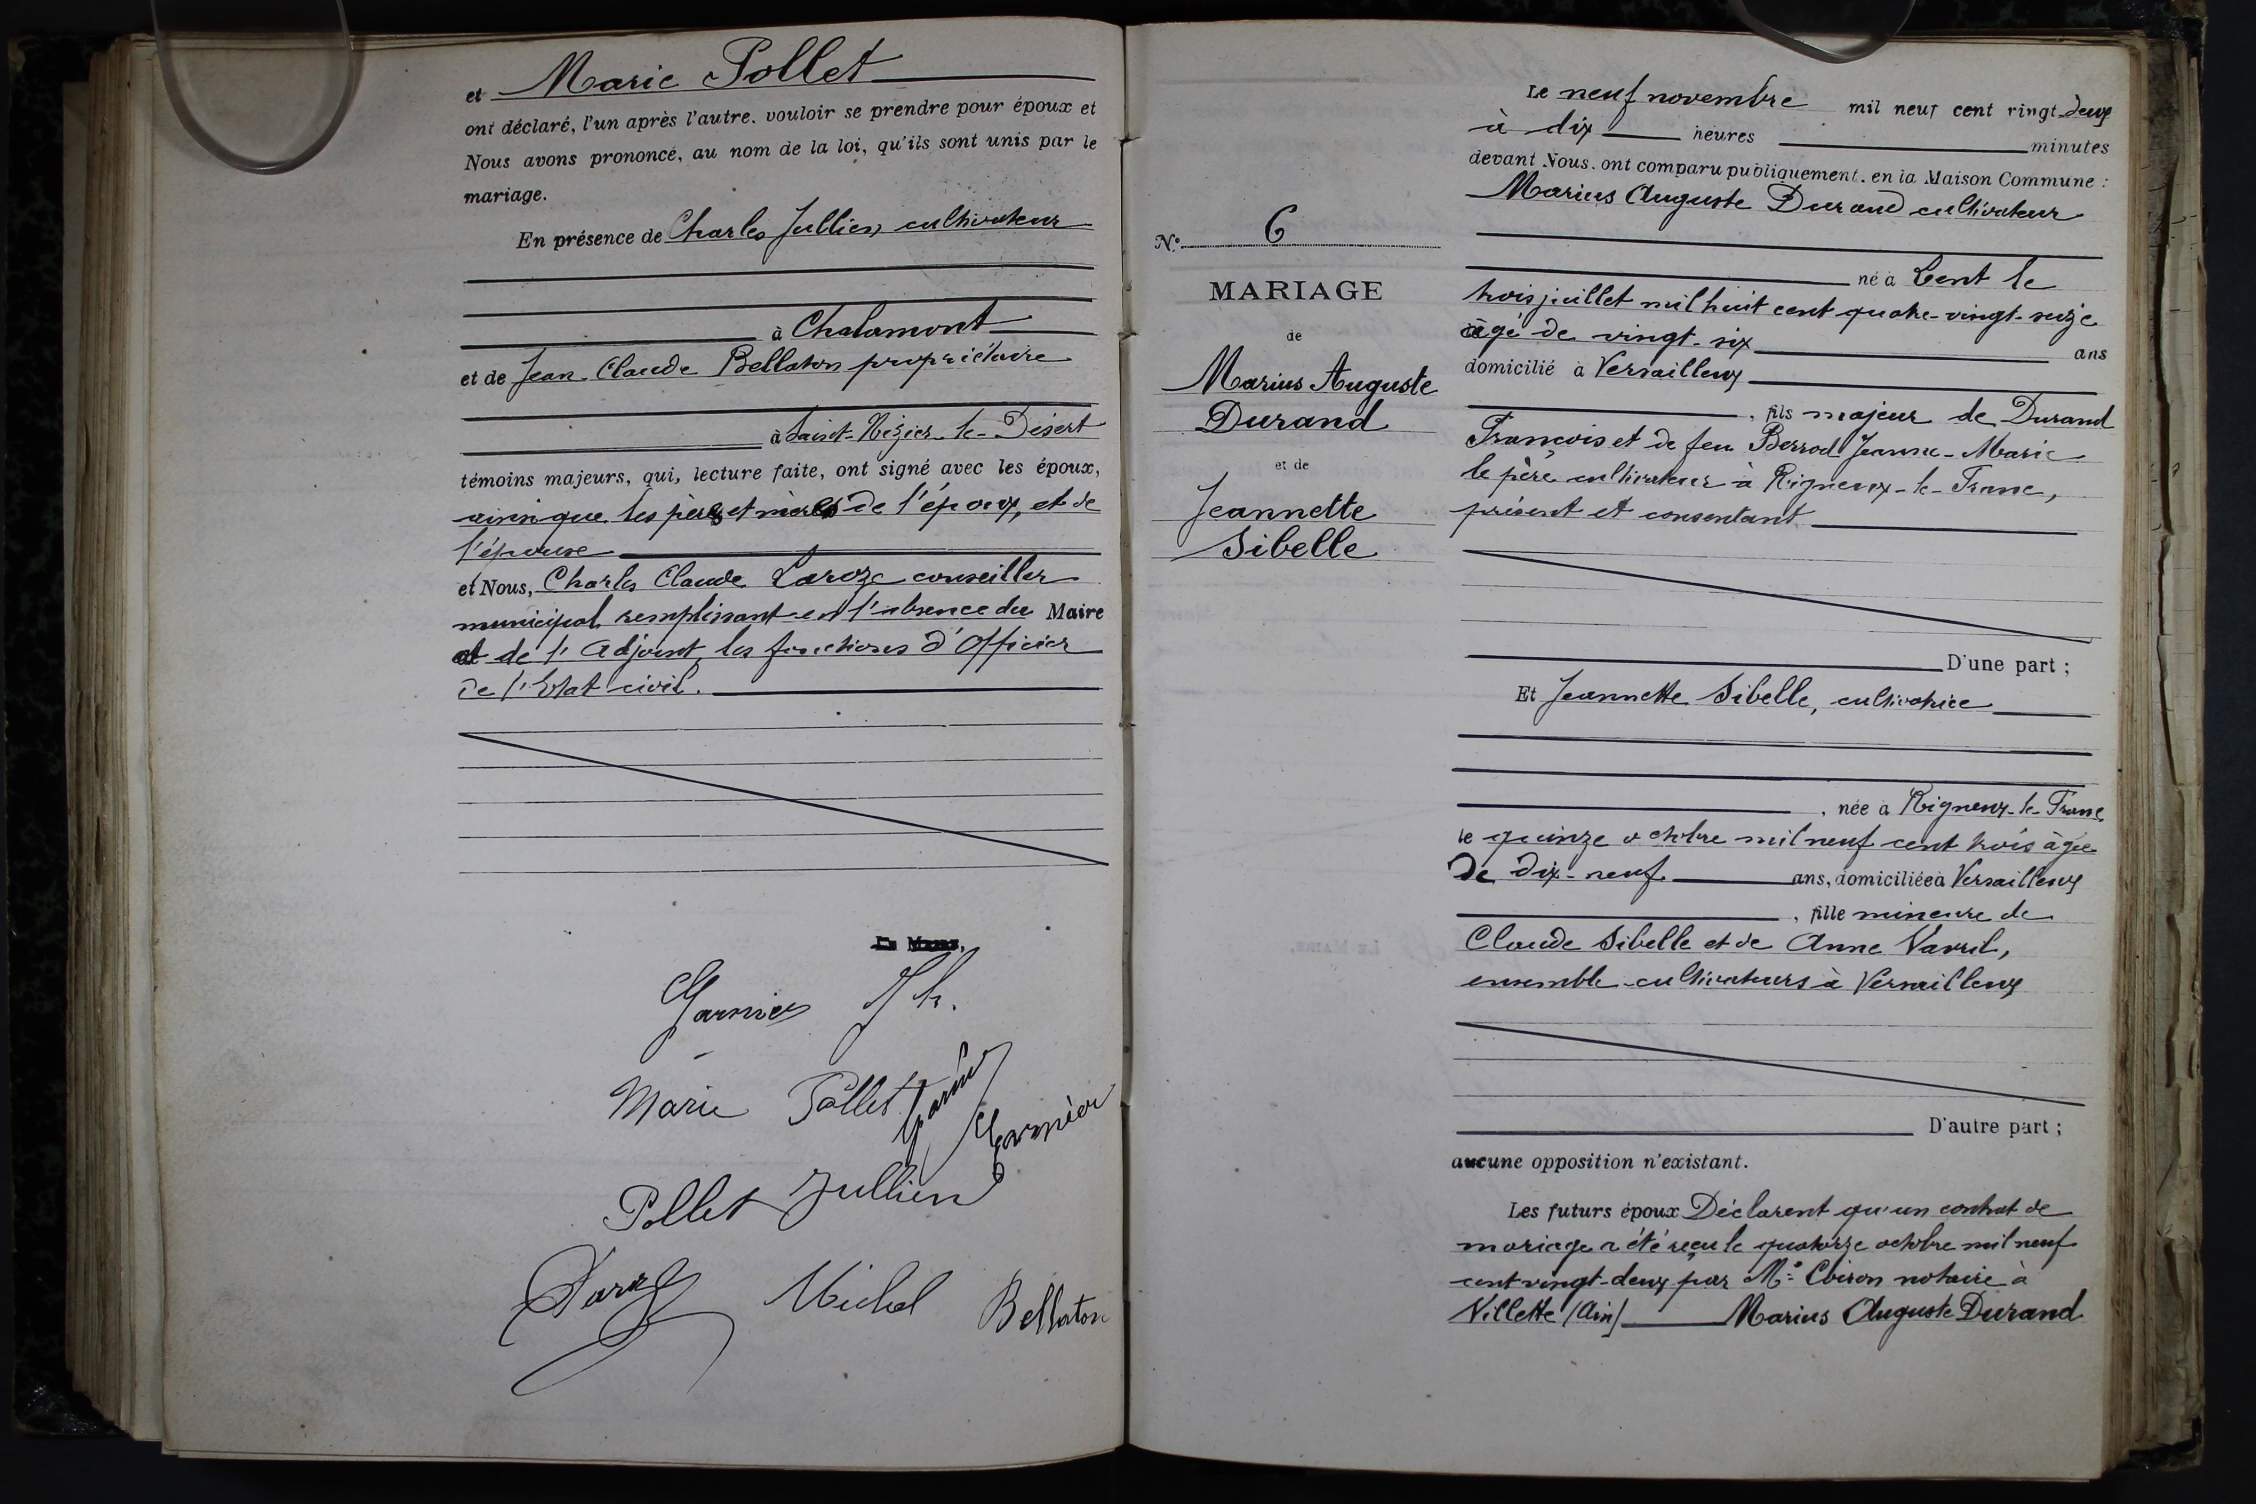 et Marie Pollet
ont déclaré, l'un après l'autre, vouloir se prendre pour époux et
Nous avons prononcé, au nom de la loi, qu'ils sont unis par le
mariage.
En présence de Charles Jullien, cultivateur
à Chalamont
et de Jean-Claude Bellaton propriétaire
à Saint-Nizier-le-Désert
témoins majeurs, qui, lecture faite, ont signé avec les époux,
ainsi que les pères et mères de l'époux, et de
l'épouse
et Nous, Charles Claude Laroze conseiller
municipal remplissant en l'absence du Maire
et de l'Adjoint, les fonctions d'Officier
de l'Etat civil.
Garnier Jh.
Marie Pollet
Garnier
Pollet Jullien
Michel Bellaton
Le neuf novembre mil neuf cent vingt-deux
à dix heures minutes
devant Nous, ont comparu publiquement, en la Maison Commune :
Marius Auguste Durand cultivateur
né à Lent le
trois juillet mil huit cent quatre-vingt-seize
âgé de vingt-six ans
domicilié à Versailleux
, fils majeur de Durand
François et de feu Berrod Jeanne-Marie
le père cultivateur à Rigneux-le-Franc,
présent et consentant
D'une part ;
Et Jeannette Sibelle, cultivatrice
, née à Rigneux-le-Franc,
le quinze octobre mil neuf cent trois âgée
de dix-neuf ans, domiciliée à Versailleux
, fille mineure de
Claude Sibelle et de Anne Vavril,
ensemble cultivateurs à Versailleux
D'autre part ;
aucune opposition n'existant.
Les futurs époux Déclarent qu'un contrat de
mariage a été reçu le quatorze octobre mil neuf
cent vingt-deux par Me Coiron notaire à
Villette (Ain) Marius Auguste Durand
N° 6
MARIAGE
de
Marius Auguste
Durand
et de
Jeannette
Sibelle